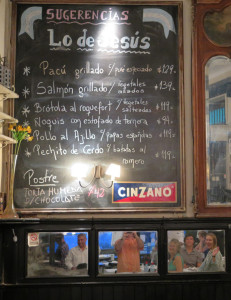 SUGERENCIAS
Lo de Jesús
Pacú grillado c/ puré especiado $129.
Salmón grillado c/ vegetales asados $139.
Brótola al roquefort c/ vegetales salteados $119.
Ñoquis con estofado de ternera $94.
Pollo al Ajillo c/ papas españolas $119.
Pechito de Cerdo c/ batatas al romero $119.
Postre
TORTA HÚMEDA
D/CHOCOLATE
$42
CINZANO